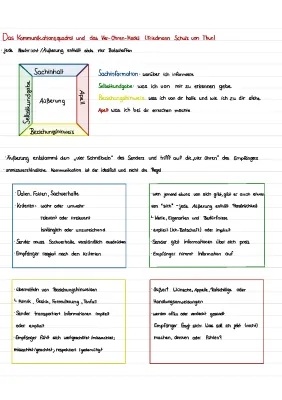 Das Kommunikationsquadrat und das Vier-Ohren-Modell (Friedmann Schulz von Thun)
jede Äußerung enthält stets vier Botschaften
Sachinhalt
Selbstkundgabe
Äußerung
Apell
Beziehungshinweis
Sachinformation: worüber ich informiere
Selbstkundgabe: was ich von mir zu erkennen gebe
Beziehungshinweis: was ich von dir halte und wie ich zu dir stehe
Apell: was ich bei dir erreichen möchte
Äußerung entstammt den „vier Schnäbeln" des Senders und trifft auf die „vier Ohren" des Empfängers
Kommunikation ist der Idealfall und nicht die Regel
- Daten, Fakten, Sachverhalte
- Kriterien: wahr oder unwahr
relevant oder irrelevant
hinlänglich oder unzureichend
- Sender muss Sachverhalte verständlich ausdrücken
- Empfänger reagiert nach den Kriterien
- wenn jemand etwas von sich gibt, gibt er auch etwas
von "sich" - jede Äußerung enthält Persönlichkeit
↳ Werte, Eigenarten und Bedürfnisse
- explizit (Ich-Botschaft) oder implizit
- Sender gibt Informationen über sich preis
- Empfänger nimmt Information auf
- übermitteln von Beziehungshinweisen
↳ Mimik, Gestik, Formulierung, Tonfall
- Sender transportiert Informationen implizit
oder explizit
- Empfänger fühlt sich wertgeschätzt/missachtet,
Wünsche, Appelle, Ratschläge oder
Handlungsanweisungen
- werden offen oder verdeckt gesandt
- Empfänger fragt sich: Was soll ich jetzt (nicht)
machen, denken oder fühlen?